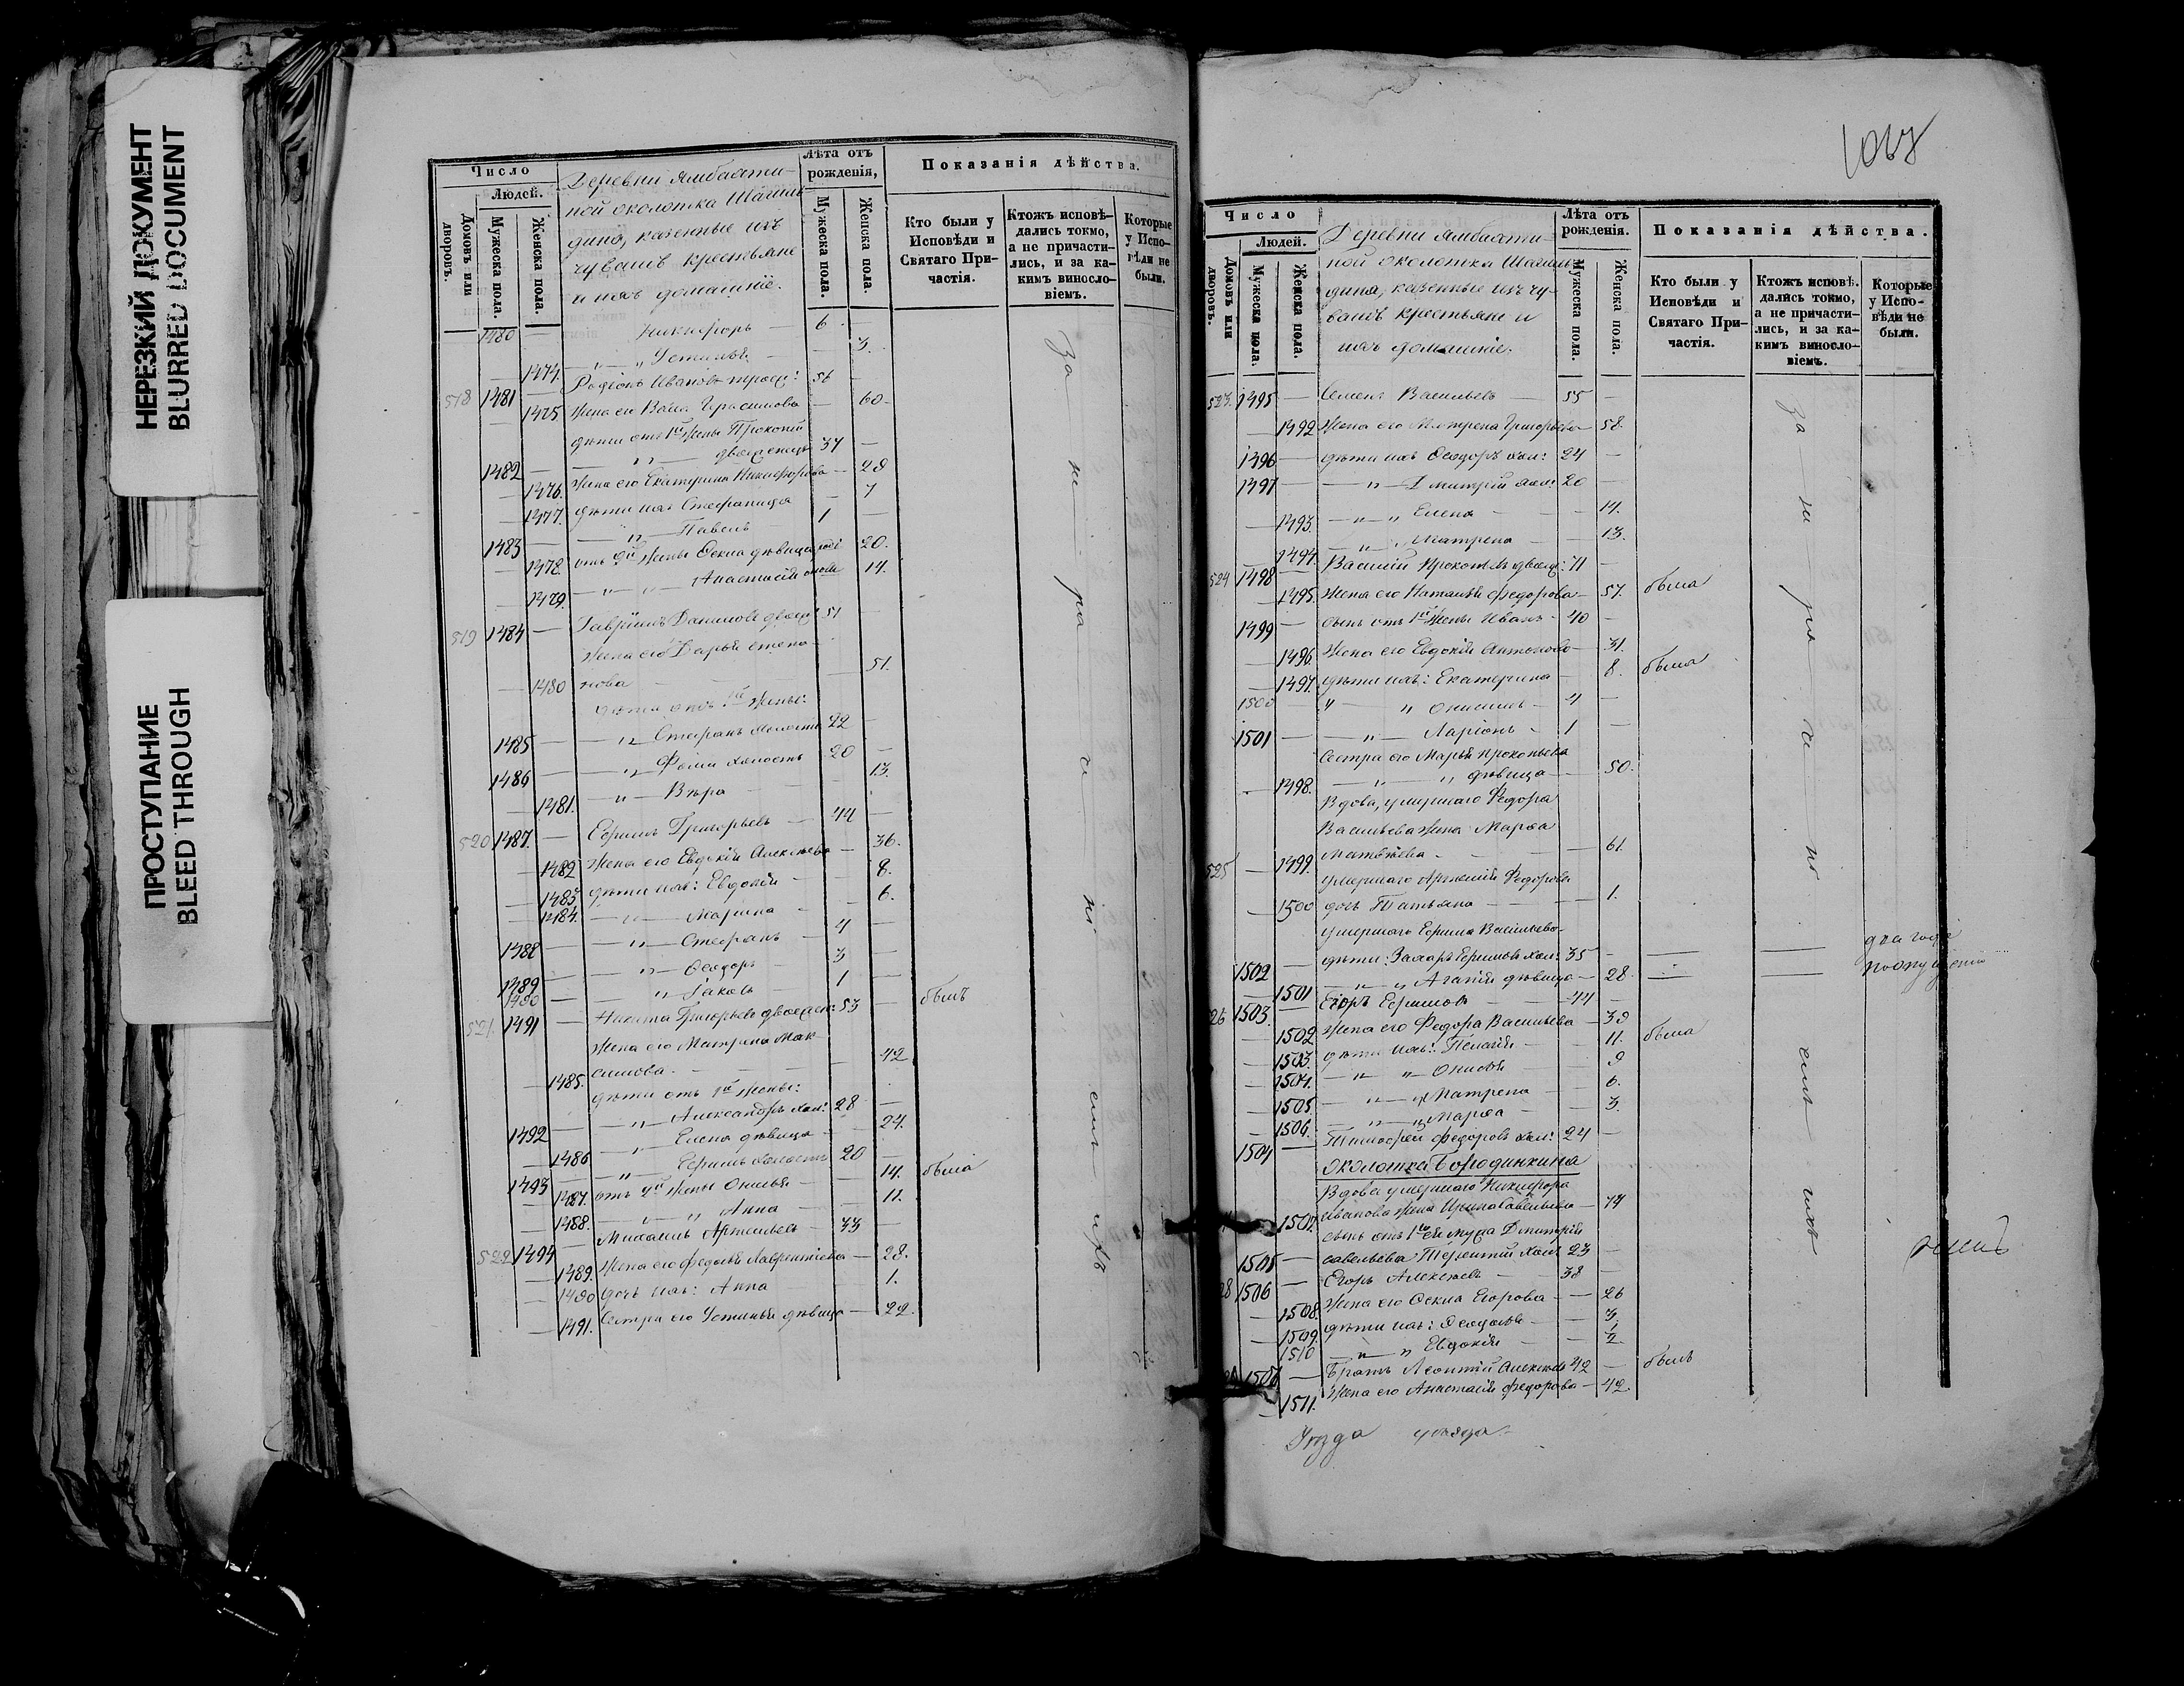 НЕРЕЗКИЙ ДОКУМЕНТ
BLURRED DOCUMENT
ПРОСТУПАНИЕ
BLEED THROUGH
Число
Людей.
Домовъ или дворовъ.
Мужеска пола.
Женска пола.
Деревни Ямбахти-
ной околотка
дина, казенные изъ
чувашъ крестьяне
и ихъ домашніе.
Лѣта отъ рожденія,
Мужеска пола.
Женска пола.
Показанія дѣйства.
Кто были у Исповѣди и Святаго Причастія.
Ктожъ исповѣдались токмо, а не причастились, и за какимъ винословіемъ.
Которые у Исповѣди не были.
1480 — Никифоръ — 6 —
— 1474. — „ Устинья — — 3.
518 1481 Родіонъ Ивановъ 56 —
— 1475. жена его Герасимова — 60.
дѣти отъ 1й жены Прокопій
1482 — „ — двоеженецъ 37 —
— 1476. жена его Екатерина Никифорова — 28
— 1477. дѣти ихъ Стефанида — 7
1483 — — „ — Павелъ 1
— 1478. отъ 2й жены Оекла дѣвица 20.
— 1479. — „ — Анастасія 14.
519 1484 — Гавріилъ Даниловъ двоеж. 51
жена его Дарья Степа-
— 1480 нова — — 51.
дѣти отъ 1й жены:
1485 — — „ Стефанъ холостъ 22 —
1486 — — „ Фома холостъ 20 —
— 1481. — „ — Вѣра — 13.
520 1487. — Ефимъ Григорьевъ — 44 —
— 1482 жена его Евдокія Алексѣева — 36.
— 1483 дѣти ихъ: Евдокія — 8.
— 1484. — „ — Марина — 6.
1488 — — „ — Стефанъ — 4
1489 — — „ — Ѳеодоръ — 3 —
1490 — — „ Іаковъ — 1 —
521 1491 — Никита Григорьевъ двоежен: 53 — былъ
жена его Матрена Мак-
— 1485. симова. — — 42
дѣти отъ 1й жены:
1492 — „ — Александръ хол: 28 —
— 1486 — „ Елена дѣвица — 24.
1493 — „ Ефимъ холостъ 20 —
— 1487. отъ 2й жены Онисья — 14. была
— 1488. — „ — „ Анна — 11.
522 1494 — Михаилъ Артемьевъ — 33 —
— 1489. жена его Федосья Лаврентьева — 28.
— 1490 дочь ихъ: Анна 1.
— 1491. Сестра его Устинья дѣвица — 22.
За не ра че ні емъ ихъ
1067
Число
Людей.
Домовъ или дворовъ.
Мужеска пола.
Женска пола.
Деревни Ямбахти-
ной околотка
дина, казенные изъ чу-
вашъ крестьяне и
ихъ домашніе.
Лѣта отъ рожденія.
Мужеска пола.
Женска пола.
Показанія дѣйства.
Кто были у Исповѣди и Святаго Причастія.
Ктожъ исповѣдались токмо, а не причастились, и за какимъ винословіемъ.
Которые у Исповѣди не были.
523. 1495 — Семенъ Васильевъ — 55 —
— 1492 жена его Матрена Григорьева — 58.
1496 — дѣти ихъ Ѳеодоръ хол: 24 —
1497 — — „ — Дмитрій хол: 20 —
— 1493. — „ — „ Елена — — 14.
— 1494. — „ — „ Матрена — 13.
524 1498 — Василій Прокопьевъ двоеж: 71 —
— 1495. жена его Наталья Федорова — 57. была
1499 — сынъ отъ 1й жены Иванъ — 40 —
— 1496. жена его Евдокія Антонова — 31.
— 1497. дѣти ихъ: Екатерина — 8. была
1500 — „ — „ Онисимъ — 4 —
1501 — — „ — Ларіонъ — 1 —
Сестра его Марья Прокопьева
— 1498. — „ — „ дѣвица — 50.
Вдова, умершаго Федора
Васильева жена Марѳа
525 — 1499. Матвѣева — — 61.
умершаго Артемія Федорова
— 1500 дочь Татьяна — — 1.
умершаго Ефима Васильева
1502 — дѣти: Захаръ Ефимовъ хол: 35 — — — два года
— 1501 — „ — „ Агафія дѣвица — 28 — —
26 1503. — Егоръ Ефимовъ — 44 —
— 1502 жена его Федора Васильева — 39
— 1503. дѣти ихъ: Пелагія — 11. была
— 1504. — „ — „ Онисья — 9
— 1505. — „ — „ Матрена — 6.
— 1506. — „ — „ Марѳа — 3.
1504 — Тимофей Федоровъ хол: 24 —
околотка Бородинкина
Вдова умершаго Никифора
— 1507. Иванова жена Ирина Савельева — 74
сынъ отъ 1го ея мужа Дмитрія
1505 — Савельева Терентій хол. 23 —
28 1506 — Егоръ Алексѣевъ — 38 —
— 1508. жена его Оекла Егорова — 26
— 1509. дѣти ихъ: Ѳеодосья — 3.
1510 — „ — „ Евдокія — ½
1507 — Братъ Леонтій Алексѣевъ 42 — былъ
— 1511. жена его Анастасія Федорова — 42
За не ра че ні емъ ихъ